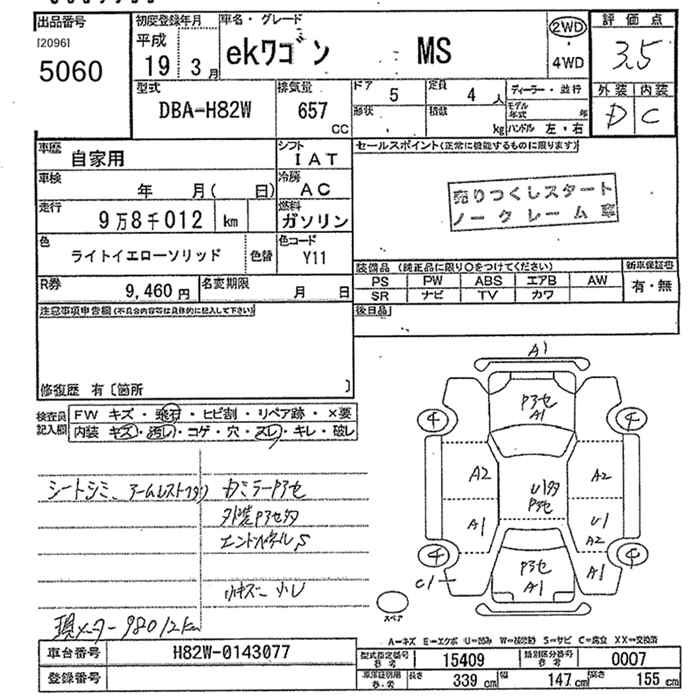 出品番号
[20961
5060
初度登録年月
平成
19 3月
車名・グレード
ekワゴン MS
2WD
・
4WD
評価点
3.5
外装 内装
D C
型式
DBA-H82W
排気量
657
CC
ドア
5
定員
4人
形状
積数
kg
ディーラー・並行
モデル年式 年
ハンドル 左・右
車歴
自家用
シフト
IAT
車検
年 月( 日)
冷房
AC
走行
9万8千012 km
燃料
ガソリン
色
ライトイエローソリッド
色替
色コード
Y11
R券
9,460円
名変期限
月 日
セールスポイント(正常に機能するものに限ります)
売りつくしスタート
ノークレーム
装備品 (純正品に限り○をつけてください)
PS PW ABS エアB AW
SR ナビ TV カワ
新車保証書
有・無
後日品
注意事項申告欄(不具合内容等は具体的に記入して下さい)
修復歴 有〔箇所 〕
検査員
記入欄
FW キズ・飛石・ヒビ割・リペア跡・×要
内装 キズ・汚れ・コゲ・穴・スレ・キレ・破レ
シートシミ、アームレスト
カミラーPアセ
外装Pアセ多
エンドパネルS
小キズ 小し
現メーター98012km
A1
Pアセ
A1
A2
A1
U多
Pアセ
A2
U1
A2
Pアセ
A1
A1
C1
4
4
4
4
スペア
A=キズ E=エクボ U=凹み W=補修跡 S=サビ C=腐食 XX=交換済
車台番号
H82W-0143077
登録番号
型式指定番号
参考
15409
類別区分番号
参考
0007
車庫証明用
参考
長さ
339cm
幅
147cm
高さ
155cm